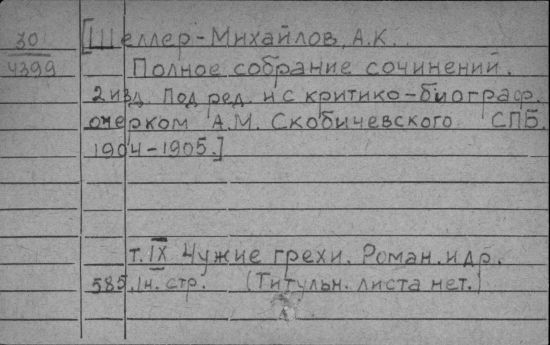 30
4399
[Шеллер-Михайлов, А.К.
Полное собрание сочинений.
2 изд. Под ред. и с критико-биограф.
очерком А.М. Скобичевского СПБ.
1904-1905.]
т. IX Чужие грехи. Роман. и др.
585, Iн. стр. (Титульн. листа нет.)